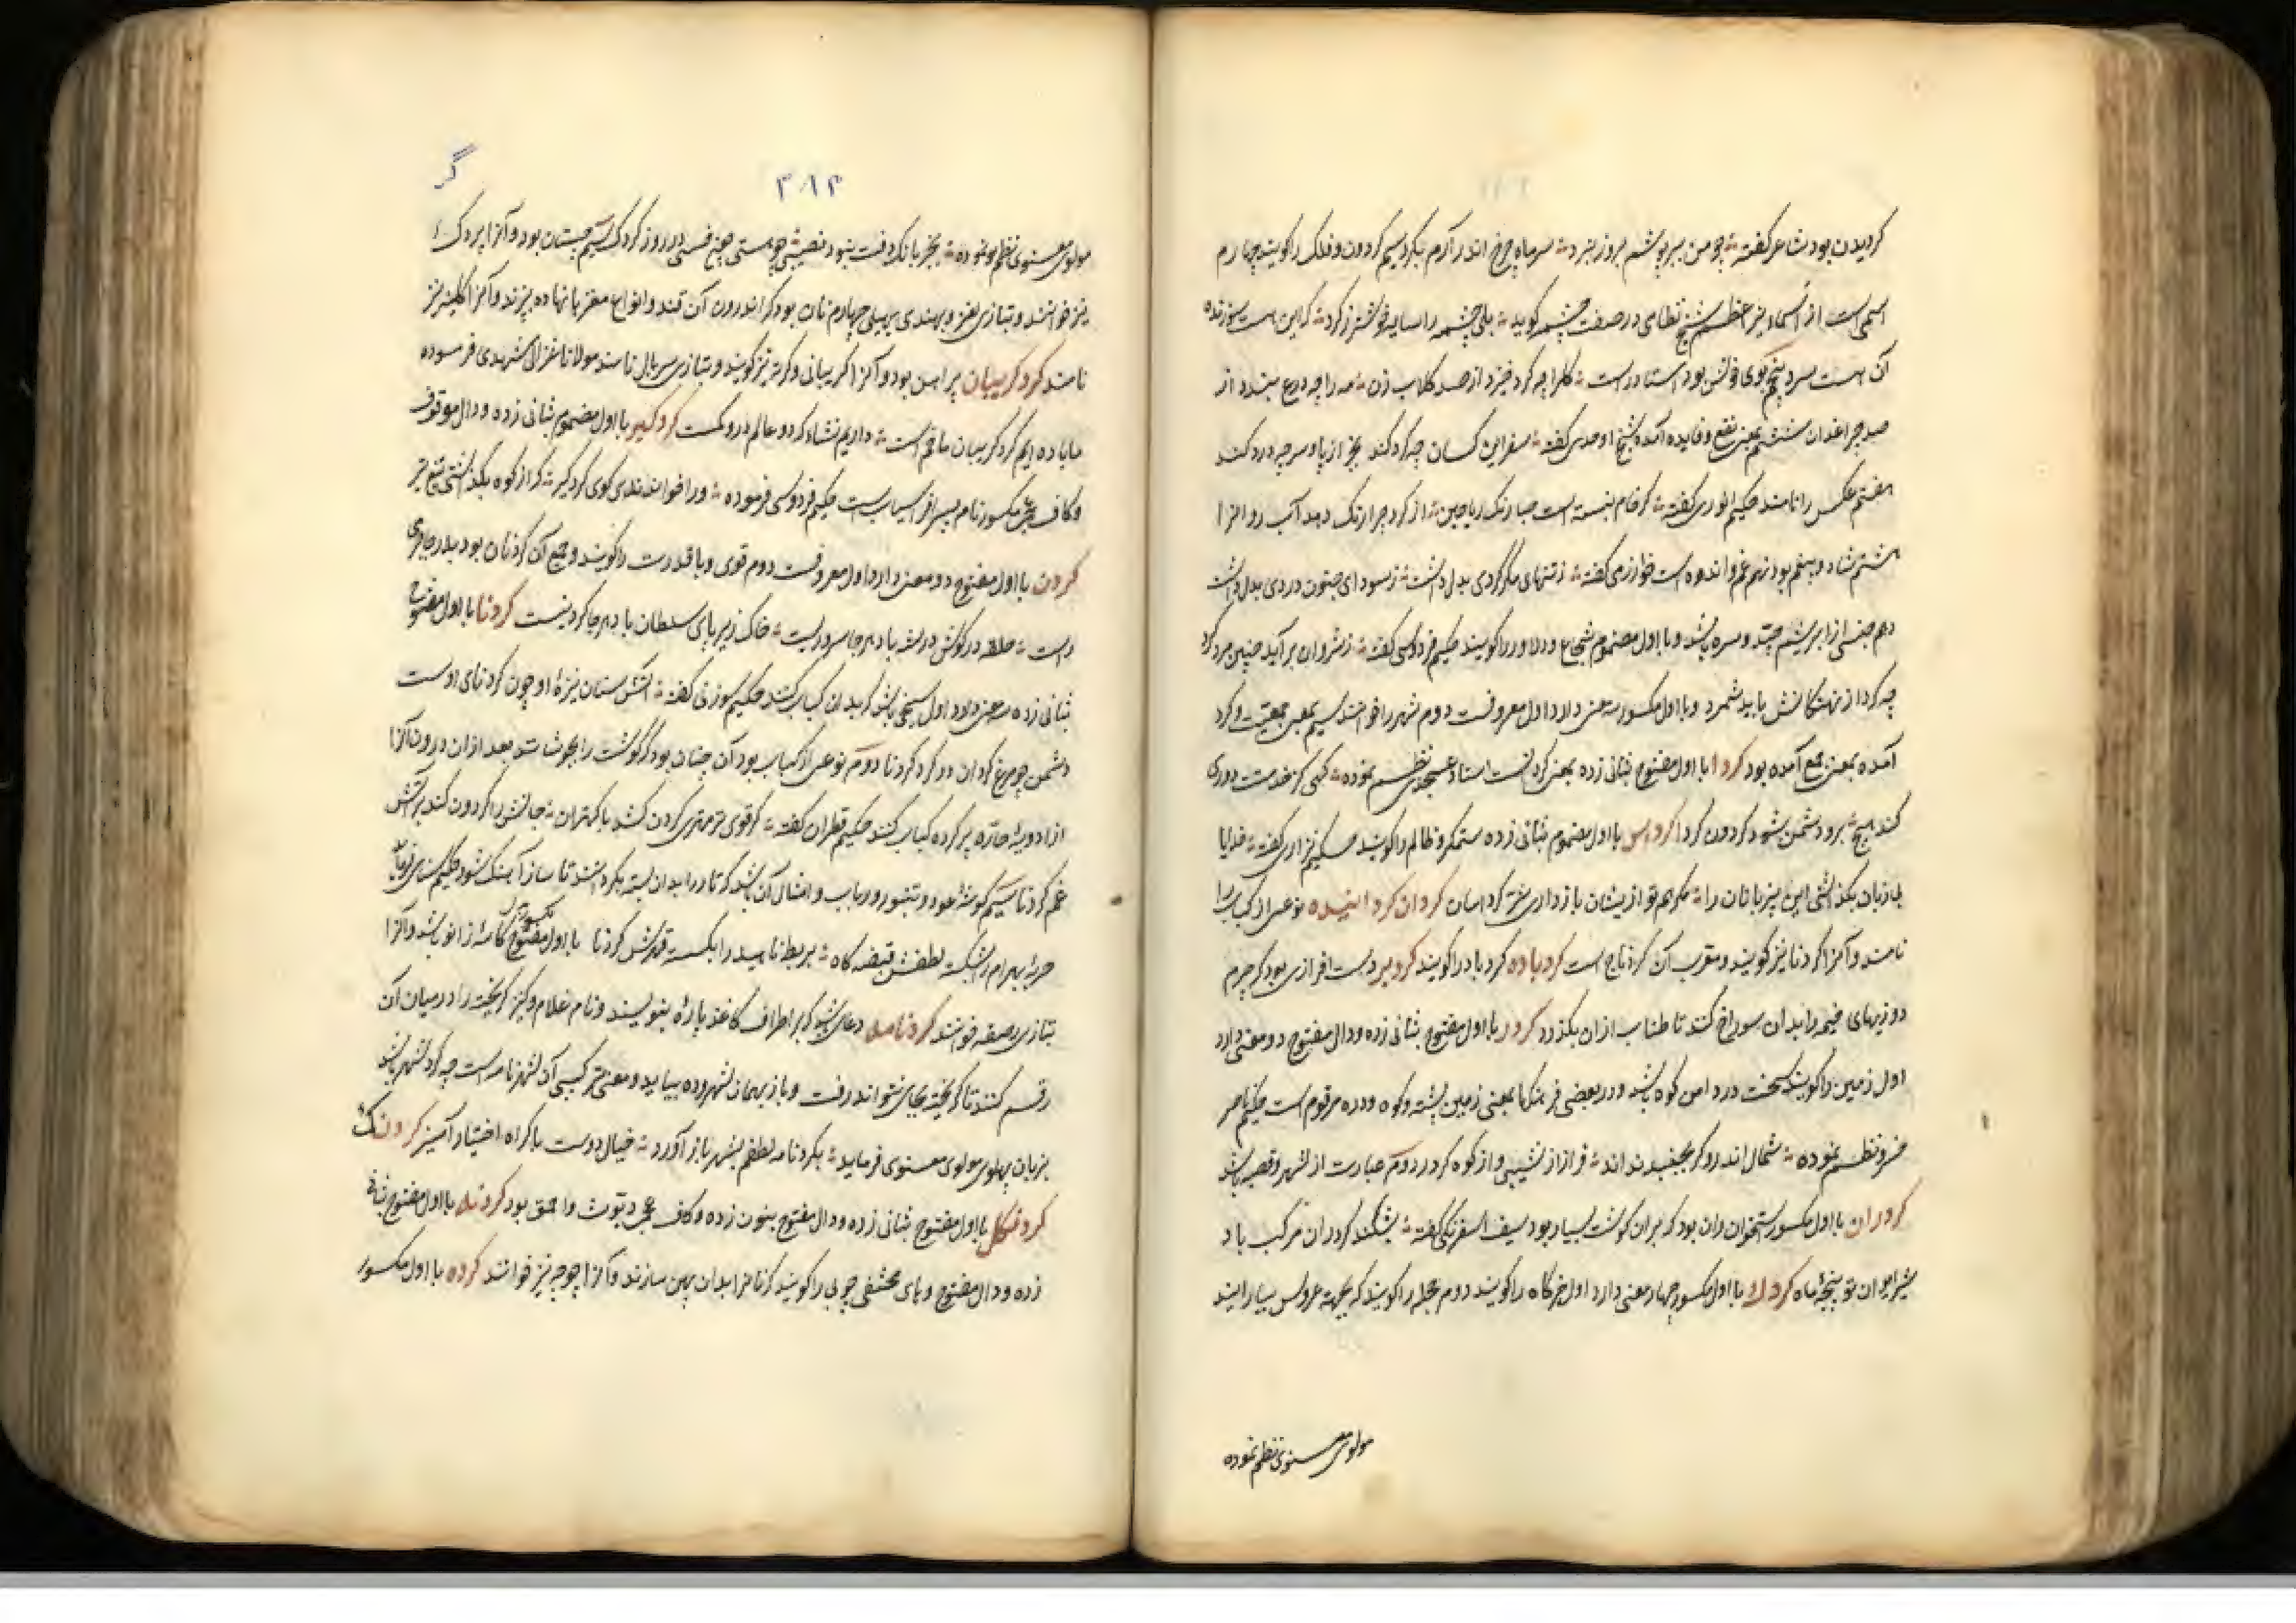 کردیدن بود شاعر کفته چو من ببر پوشم بروز نبرد سر ماه چرخ اندر آرم بکرد سیم کردون و فلک را کویند چهارم
اسمی است از اسماء نیر اعظم شیخ نظامی در صفت چشمه کوید بلی چشمه را سایه خوشتر ز کرد که این هست سوزنده
آن هست سرد پنجم بوی خوش بود استاد راست
صد چراغدان ششم بمعنی نفع و فایده آمده شیخ اوحدی کفته سفر این کسان چه کرد کند بجز از پا و سر چه درد کند
هفتم عکس را نامند حکیم انوری کفته کر خام نبسته است صبا رنک ریاحین از کرد چرا رنک دهد آب روانرا
هشتم شاد و بیغم بود نهم غم و اندوه است خوارزمی کفته بدل داشت ز سودای جنون دردی بدل داشت
دهم جنسی از ابریشم و سره باشد و با اول مضموم شجاع و دلاور را کویند حکیم فردوسی کفته
چه کرد از باید شمرد و با اول مکسور سه معنی دارد اول معروفست دوم شهر را خوانند سیم بمعنی جمعیت و کرد
آمده بمعنی جمع آمده بود کردا با اول مفتوح بثانی زده بمعنی کردنست استاد عسجدی نظم نموده کهی کز خدمتت دوری
کند هیچ برو دشمن شود کردون کردا کرداس با اول مضموم بثانی زده ستمکر و ظالم را کویند حکیم نزاری کفته خدایا
این پیزبانان را کردان کردانیده نوعی از کباب را
نامند و آنرا کردنا نیز کویند و معرب آن کردناج است کردباده کردباد را کویند کردبر دست افزاری بود که چرم
دوزیهای خیمه را بدان سوراخ کنند تا طناب از آن بکذرد کردر با اول مفتوح بثانی زده و دال مفتوح دو معنی دارد
اول زمین را کویند سخت در دامن کوه باشد و در بعضی فرهنکها بمعنی زمین پشته و کوه و دره مرقوم است حکیم ناصر
خسرو نظم نموده شمال اندرو کر بجنبد نداند فراز از نشیبی و از کوه کردر دوم عبارت از شهر و قصبه باشد
کردران با اول مکسور استخوان ران بود که بران کوشت بسیار بود سیف اسفرنکی کفته بشکند کردران مرکب باد
شیر ایوان تو بپنجه ماه کردک با اول مکسور چهار معنی دارد اول خرکاه را کویند دوم حجله را کویند که بجهته عروس بیارایند
مولوی معنوی نظم نموده
۳۱۳
گر
مولوی معنوی نظم نموده بجز بانک دفت نبود نصیبی چو هستی در روز کردک سیم چیستان بود و آنرا بردک
نیز خوانند و بتازی لغز و بهندی پهیلی چهارم نان بود که اندرون آن قند و انواع مغزها نهاده بپزند و آنرا کلیچه نیز
نامند کرد کریبان پیراهن بود و آنرا کریبانی و کرته نیز کویند و بتازی سربال نامند مولانا غزالی مشهدی فرموده
ما باده ایم کرد کریبان ما خم است داریم نشاه که دو عالم درو کمست کردکیر با اول مضموم بثانی زده و دال موقوف
و کاف عجمی مکسور نام پسر افراسیاب است حکیم فردوسی فرموده ورا خواندندی کوی کردکیر که از کوه بکذاشتی تیغ تیز
کردن با اول مفتوح دو معنی دارد اول معروفست دوم قوی و با قدرت را کویند و جمع آن کردنان بود بدر جاجرمی
راست حلقه در کوش درت باد هر جا سروریست خاک زیر پای سلطان باد هر جا کردنیست کردنا با اول مفتوح
بثانی زده سه معنی دارد اول سیخی باشد که بدان کباب کنند حکیم سوزنی کفته آتش سنان نیزه او چون کردنای اوست
دشمن چو مرغ کردان در کرد کردنا دوم نوعی از کباب بود آن چنان بود که کوشت را بجوشانند بعد از آن درون آنرا
از ادویهٔ حاره پر کرده کباب کنند حکیم قطران کفته کر قوی تر مهتری کردن کشد با کهتران جانش را کردون کند بر آتش
غم کردنا سیم کوشهٔ عود و تنبور و رباب و امثال آن باشد که تارها را بدان بسته بکردانند تا ساز آهنک شود حکیم سنائی فرماید
حربهٔ بهرام را شکسته لطفش قبضه کاه بربط ناهید را بکسسته قهرش کردنا با اول مفتوح کاسهٔ زانو باشد و آنرا
بتازی رضفه خوانند کردنامه دعائی باشد که بر اطراف کاغذ پارهٔ بنویسند و نام غلام و کنیز کریخته را در میان آن
رقم کنند تا کریخته بجائی نتواند رفت و باز بهمان شهر و ده بیاید و معنی ترکیبی آن شهر نامه است چه کرد شهر باشد
بزبان پهلوی مولوی معنوی فرماید بکردنامه لطفم بشهر باز آورد خیال دوست باکراه اختیار آمیز کردنک
کردنکل با اول مفتوح بثانی زده و دال مفتوح بنون زده و کاف عجمی دیوث و احمق بود کردنه با اول مفتوح بثانی
زده و دال مفتوح و های مختفی چوبی را کویند که نانرا بدان پهن سازند و آنرا چوجه نیز خوانند کرده با اول مکسور